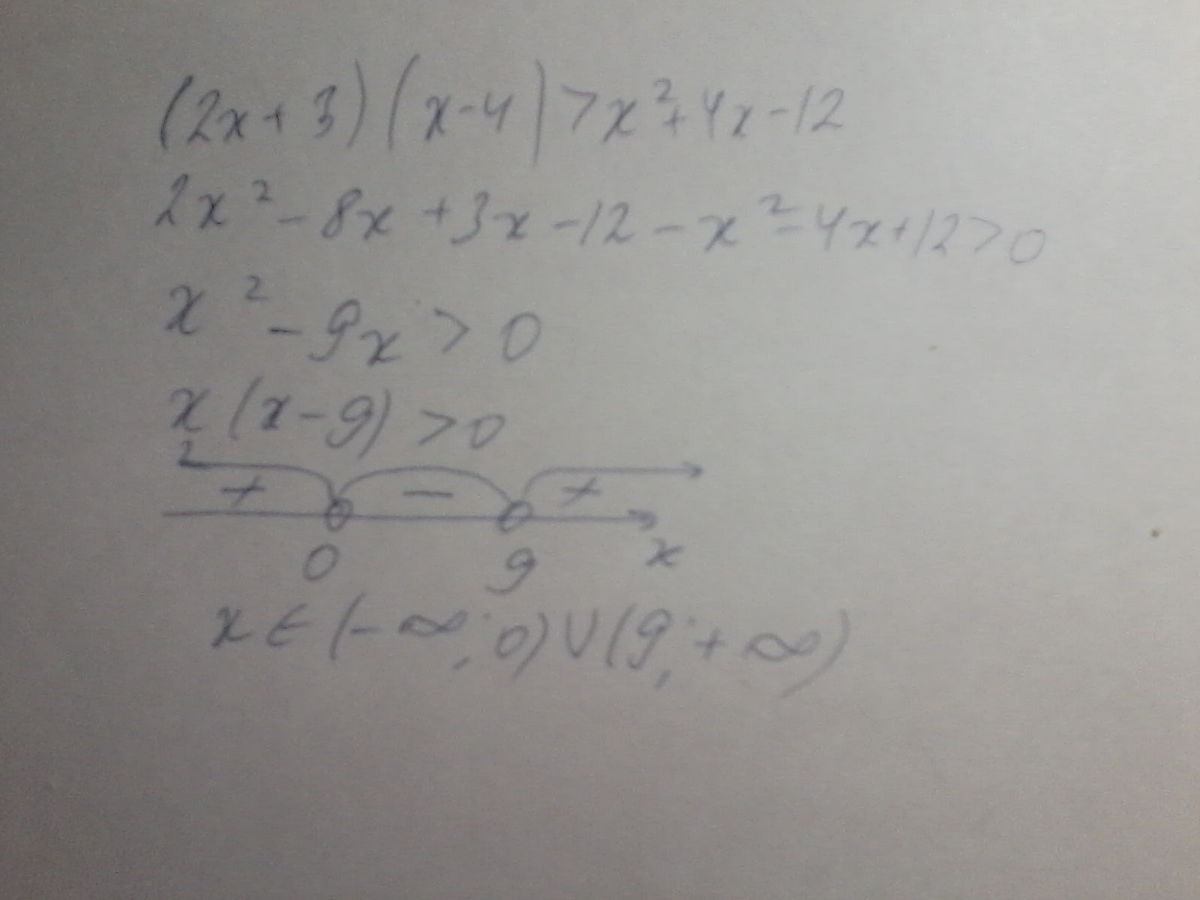 (2x+3)(x-4)>x²+4x-12
2x²-8x+3x-12-x²-4x+12>0
x²-9x>0
x(x-9)>0
+ - +
0 9 x
x∈(-∞;0)∪(9;+∞)